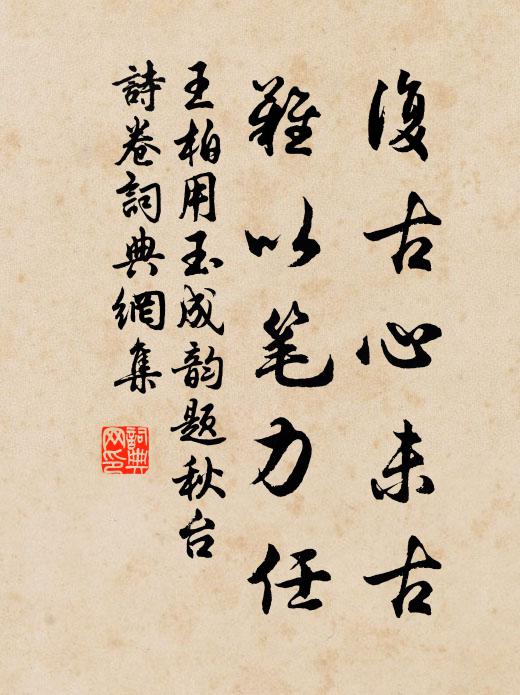 復古心未古
難以笔力任
王柏用玉成韵題秋台
詩卷詞典網集
詞典网印